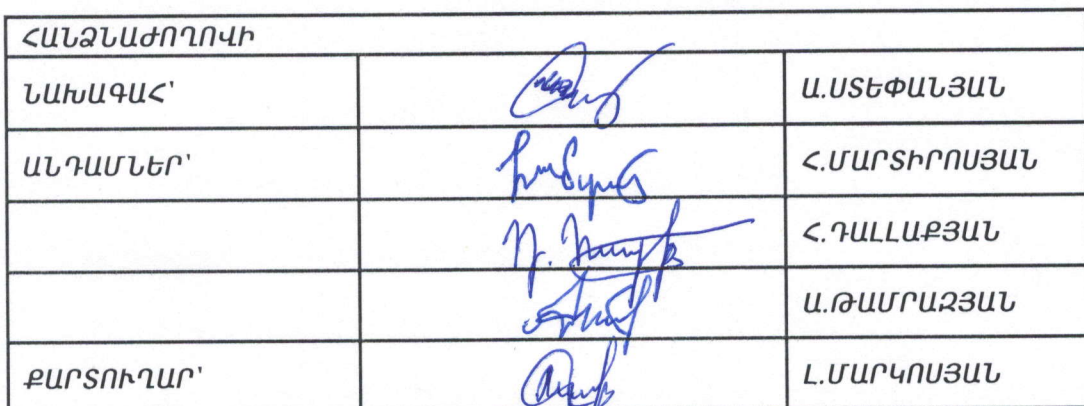 ՀԱՆՁՆԱԺՈՂՈՎԻ
ՆԱԽԱԳԱՀ՝ Ա.ՍՏԵՓԱՆՅԱՆ
ԱՆԴԱՄՆԵՐ՝ Հ.ՄԱՐՏԻՐՈՍՅԱՆ
Հ.ԴԱԼԼԱՔՅԱՆ
Ա.ԹԱՄՐԱԶՅԱՆ
ՔԱՐՏՈՒՂԱՐ՝ Լ.ՄԱՐԿՈՍՅԱՆ